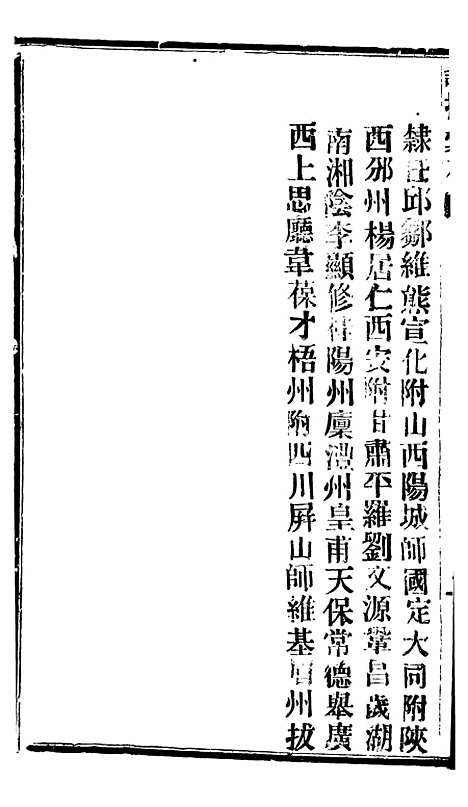 隸任邱鄒維熊宣化附山西陽城師國定大同附陝
西邠州楊居仁西安附甘肅平羅劉文源鞏昌歲湖
南湘陰李顯修桂陽州廩澧州皇甫天保常德舉廣
西上思廳韋葆才梧州附四川屏山師維基眉州拔